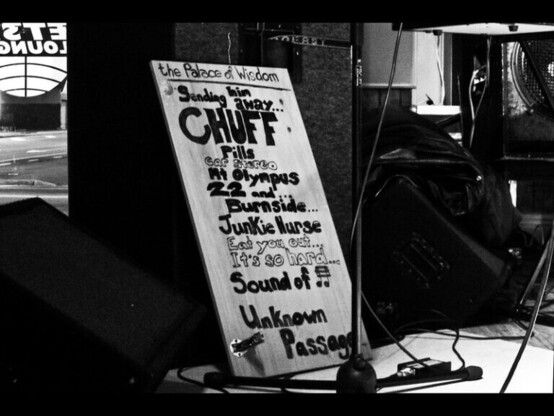 the Palace of Wisdom
Sending him
away...!
CHUFF
Pills
car stereo
Mt Olympus
22 and...
Burnside...
Junkie Nurse
Eat you out...
It's so hard...
Sound of
Unknown
Passage
LOUNG